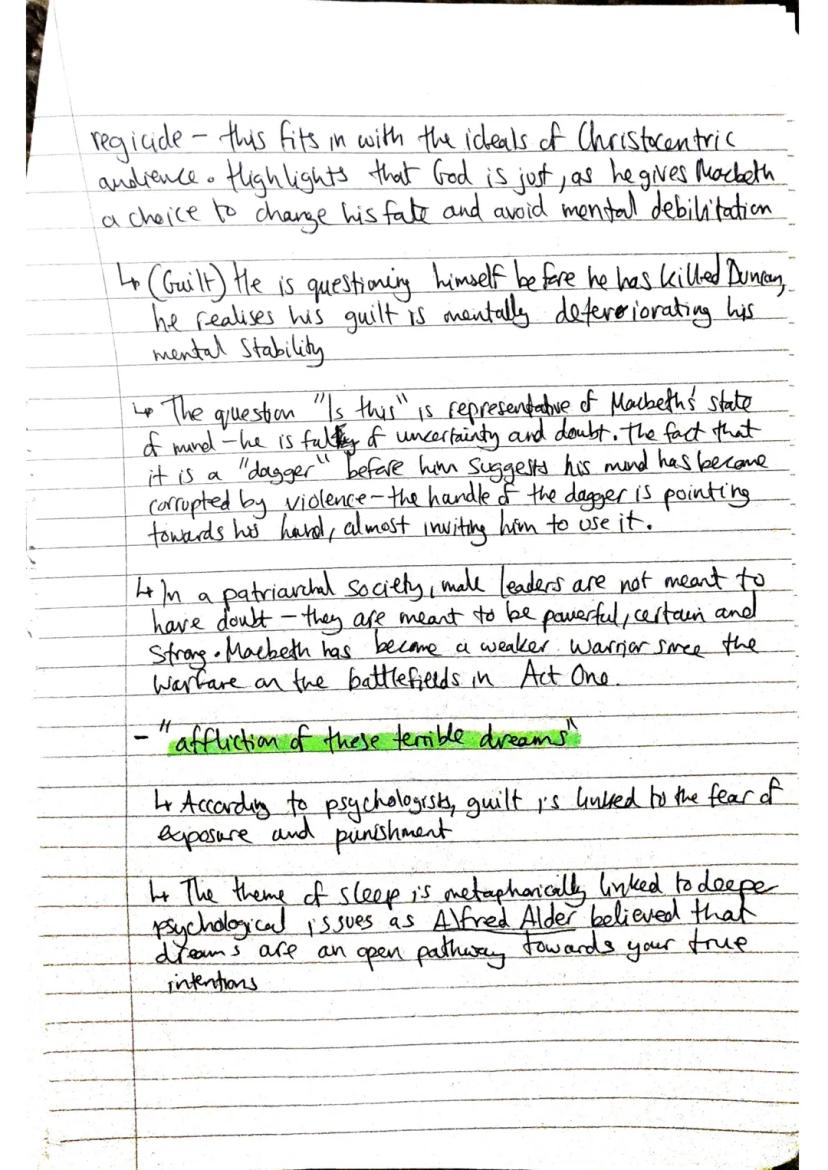 regicide – this fits in with the ideals of Christocentric
audience. Highlights that God is just, as he gives Macbeth
a choice to change his fate and avoid mental debilitation
↳ (Guilt) He is questioning himself before he has killed Duncan,
he realises his guilt is mentally deteriorating his
mental stability
↳ The question "Is this" is representative of Macbeth's state
of mind – he is full of uncertainty and doubt. The fact that
it is a "dagger" before him suggests his mind has become
corrupted by violence – the handle of the dagger is pointing
towards his hand, almost inviting him to use it.
↳ In a patriarchal society, male leaders are not meant to
have doubt – they are meant to be powerful, certain and
strong. Macbeth has become a weaker warrior since the
warfare on the battlefields in Act One.
– "affliction of these terrible dreams"
↳ According to psychologists, guilt is linked to the fear of
exposure and punishment
↳ The theme of sleep is metaphorically linked to deeper
psychological issues as Alfred Alder believed that
dreams are an open pathway towards your true
intentions